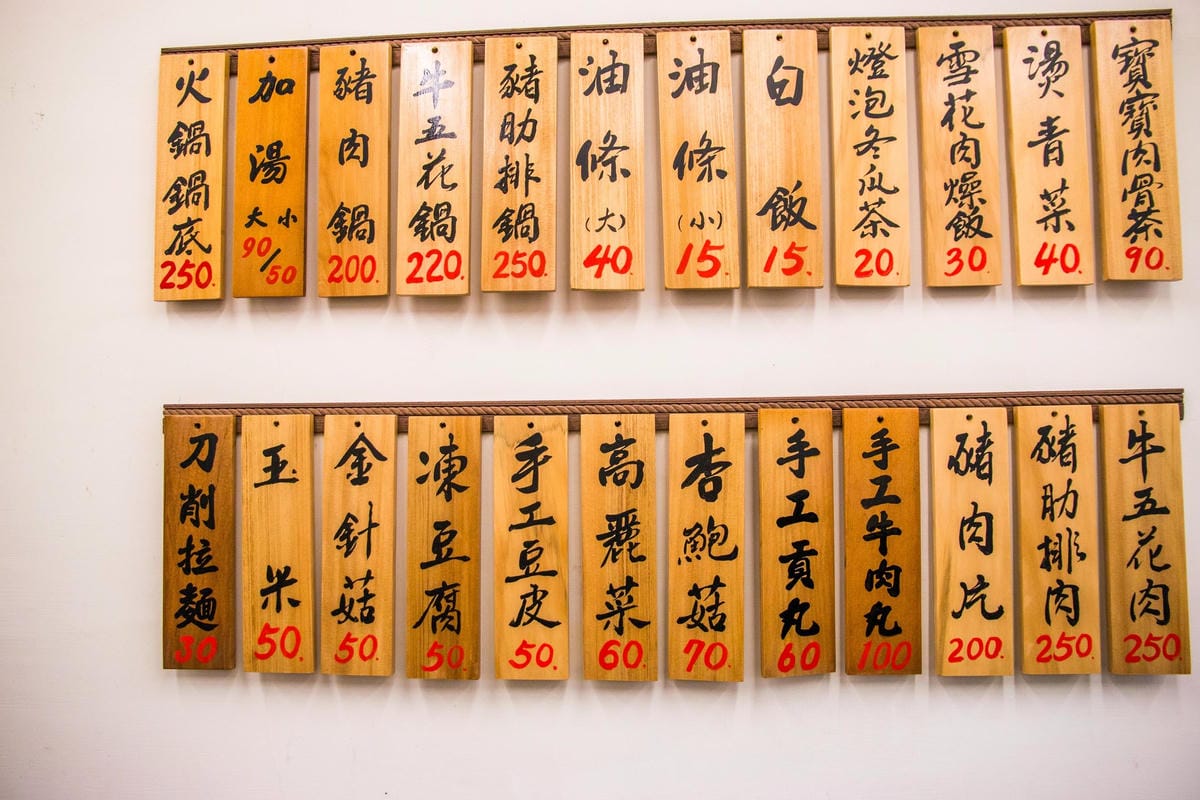 寶寶肉骨茶 90.
燙青菜 40.
雪花肉燥飯 30.
燈泡冬瓜茶 20.
白飯 15.
油條(小) 15.
油條(大) 40.
豬肋排鍋 250.
牛五花鍋 220.
豬肉鍋 200.
加湯 大小 90/50
火鍋鍋底 250.
牛五花肉 250.
豬肋排肉 250.
豬肉片 200.
手工牛肉丸 100
手工貢丸 60
杏鮑菇 70.
高麗菜 60.
手工豆皮 50.
凍豆腐 50.
金針菇 50.
玉米 50.
刀削拉麵 30